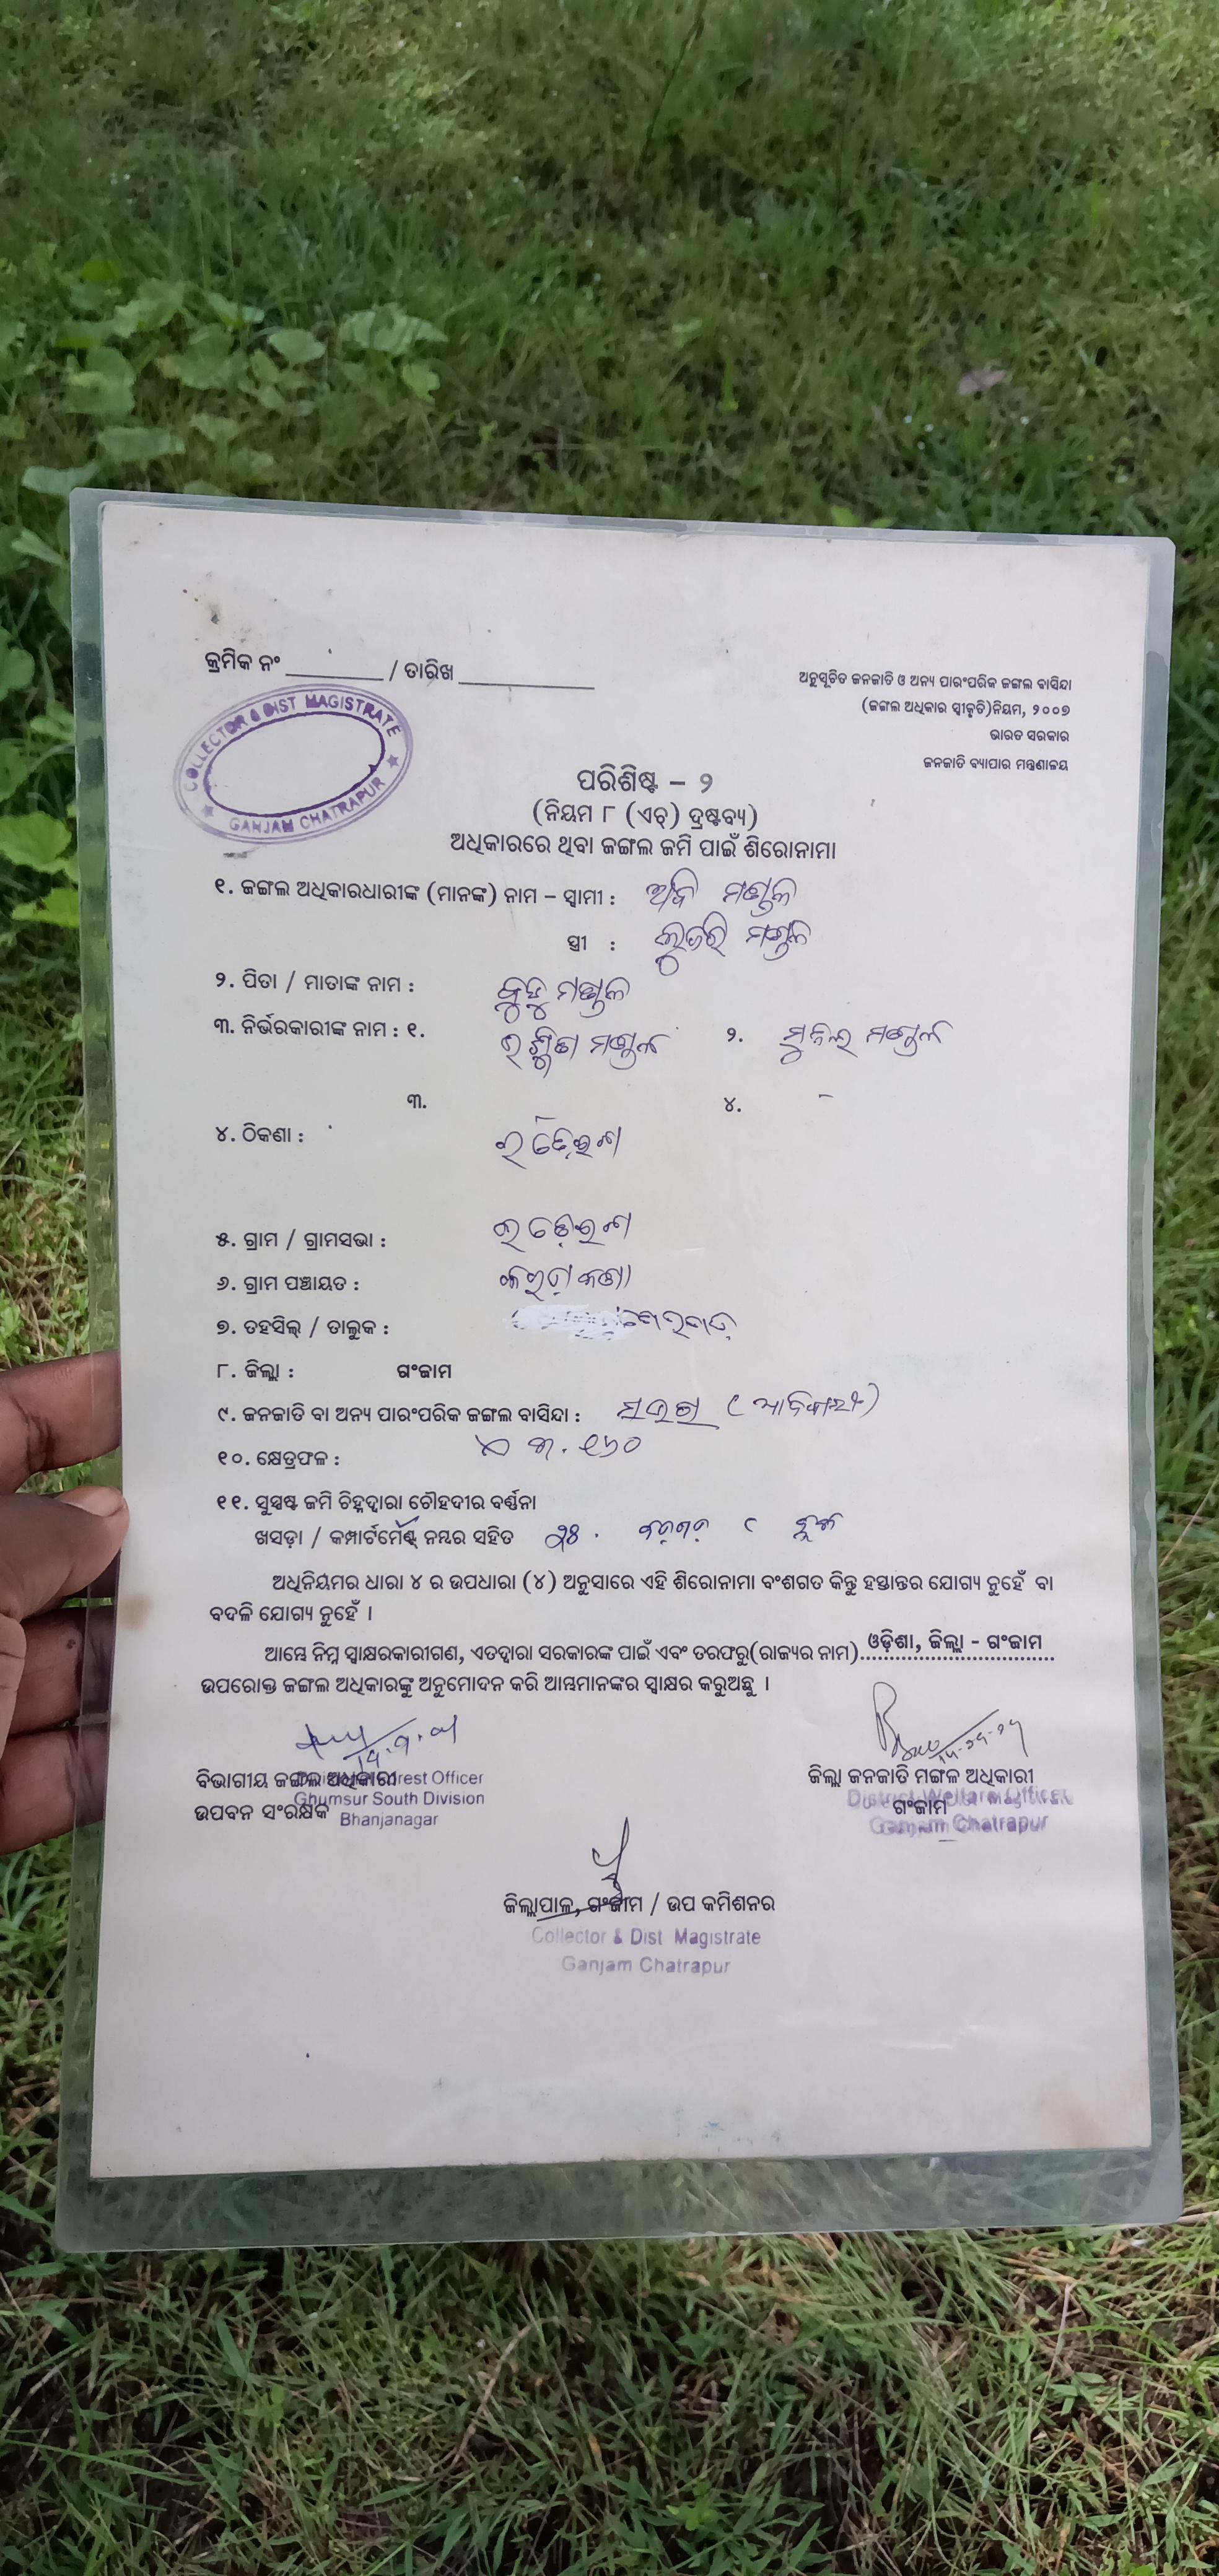 କ୍ରମିକ ନଂ ________ / ତାରିଖ ____________
ଅନୁସୂଚିତ ଜନଜାତି ଓ ଅନ୍ୟ ପାରଂପରିକ ଜଙ୍ଗଲ ବାସିନ୍ଦା
(ଜଙ୍ଗଲ ଅଧିକାର ସ୍ୱୀକୃତି)ନିୟମ, ୨୦୦୭
ଭାରତ ସରକାର
ଜନଜାତି ବ୍ୟାପାର ମନ୍ତ୍ରଣାଳୟ
COLLECTOR & DIST MAGISTRATE
GANJAM CHATRAPUR
ପରିଶିଷ୍ଟ – ୨
(ନିୟମ ୮ (ଏଚ୍) ଦ୍ରଷ୍ଟବ୍ୟ)
ଅଧିକାରରେ ଥିବା ଜଙ୍ଗଲ ଜମି ପାଇଁ ଶିରୋନାମା
୧. ଜଙ୍ଗଲ ଅଧିକାରଧାରୀଙ୍କ (ମାନଙ୍କ) ନାମ – ସ୍ୱାମୀ : ମଣ୍ଡଳ
ସ୍ତ୍ରୀ : ମଣ୍ଡଳ
୨. ପିତା / ମାତାଙ୍କ ନାମ : ମଣ୍ଡଳ
୩. ନିର୍ଭରକାରୀଙ୍କ ନାମ : ୧. ମଣ୍ଡଳ ୨. ମଣ୍ଡଳ
୩. ୪. –
୪. ଠିକଣା :
୫. ଗ୍ରାମ / ଗ୍ରାମସଭା :
୬. ଗ୍ରାମ ପଞ୍ଚାୟତ :
୭. ତହସିଲ୍ / ତାଲୁକ :
୮. ଜିଲ୍ଲା : ଗଂଜାମ
୯. ଜନଜାତି ବା ଅନ୍ୟ ପାରଂପରିକ ଜଙ୍ଗଲ ବାସିନ୍ଦା : (ଆଦିବାସୀ)
୧୦. କ୍ଷେତ୍ରଫଳ :
୧୧. ସୁସ୍ପଷ୍ଟ ଜମି ଚିହ୍ନଦ୍ୱାରା ଚୌହଦୀର ବର୍ଣ୍ଣନା
ଖସଡ଼ା / କମ୍ପାର୍ଟମେଣ୍ଟ ନମ୍ବର ସହିତ
ଅଧିନିୟମର ଧାରା ୪ ର ଉପଧାରା (୪) ଅନୁସାରେ ଏହି ଶିରୋନାମା ବଂଶଗତ କିନ୍ତୁ ହସ୍ତାନ୍ତର ଯୋଗ୍ୟ ନୁହେଁ ବା
ବଦଳି ଯୋଗ୍ୟ ନୁହେଁ ।
ଆମ୍ଭେ ନିମ୍ନ ସ୍ୱାକ୍ଷରକାରୀଗଣ, ଏତଦ୍ୱାରା ସରକାରଙ୍କ ପାଇଁ ଏବଂ ତରଫରୁ(ରାଜ୍ୟର ନାମ) ଓଡ଼ିଶା, ଜିଲ୍ଲା - ଗଂଜାମ
ଉପରୋକ୍ତ ଜଙ୍ଗଲ ଅଧିକାରଙ୍କୁ ଅନୁମୋଦନ କରି ଆମ୍ଭମାନଙ୍କର ସ୍ୱାକ୍ଷର କରୁଅଛୁ ।
ବିଭାଗୀୟ ଜଙ୍ଗଲ ଅଧିକାରୀ
ଉପବନ ସଂରକ୍ଷକ
Forest Officer
Ghumsur South Division
Bhanjanagar
ଜିଲ୍ଲା ଜନଜାତି ମଙ୍ଗଳ ଅଧିକାରୀ
ଗଂଜାମ
District Welfare Officer
Ganjam Chatrapur
ଜିଲ୍ଲାପାଳ, ଗଂଜାମ / ଉପ କମିଶନର
Collector & Dist Magistrate
Ganjam Chatrapur